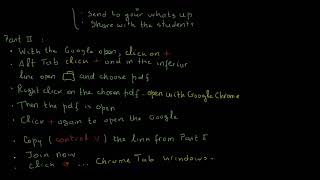 Send to your whats up
Share with the students
Part II :
• With the Google open, click on +
• Alt Tab click + and in the inferior
line open and choose pdf
• Right click on the chosen pdf - open with Google Chrome
• Then the pdf is open
• Click + again to open the Google
• Copy (control v) the linn from Part I
• Join now
• click ... Chrome Tab windows -